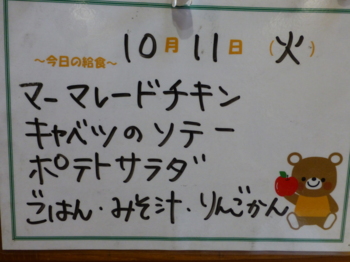 10月11日(火)
～今日の給食～
マーマレードチキン
キャベツのソテー
ポテトサラダ
ごはん・みそ汁・りんごかん